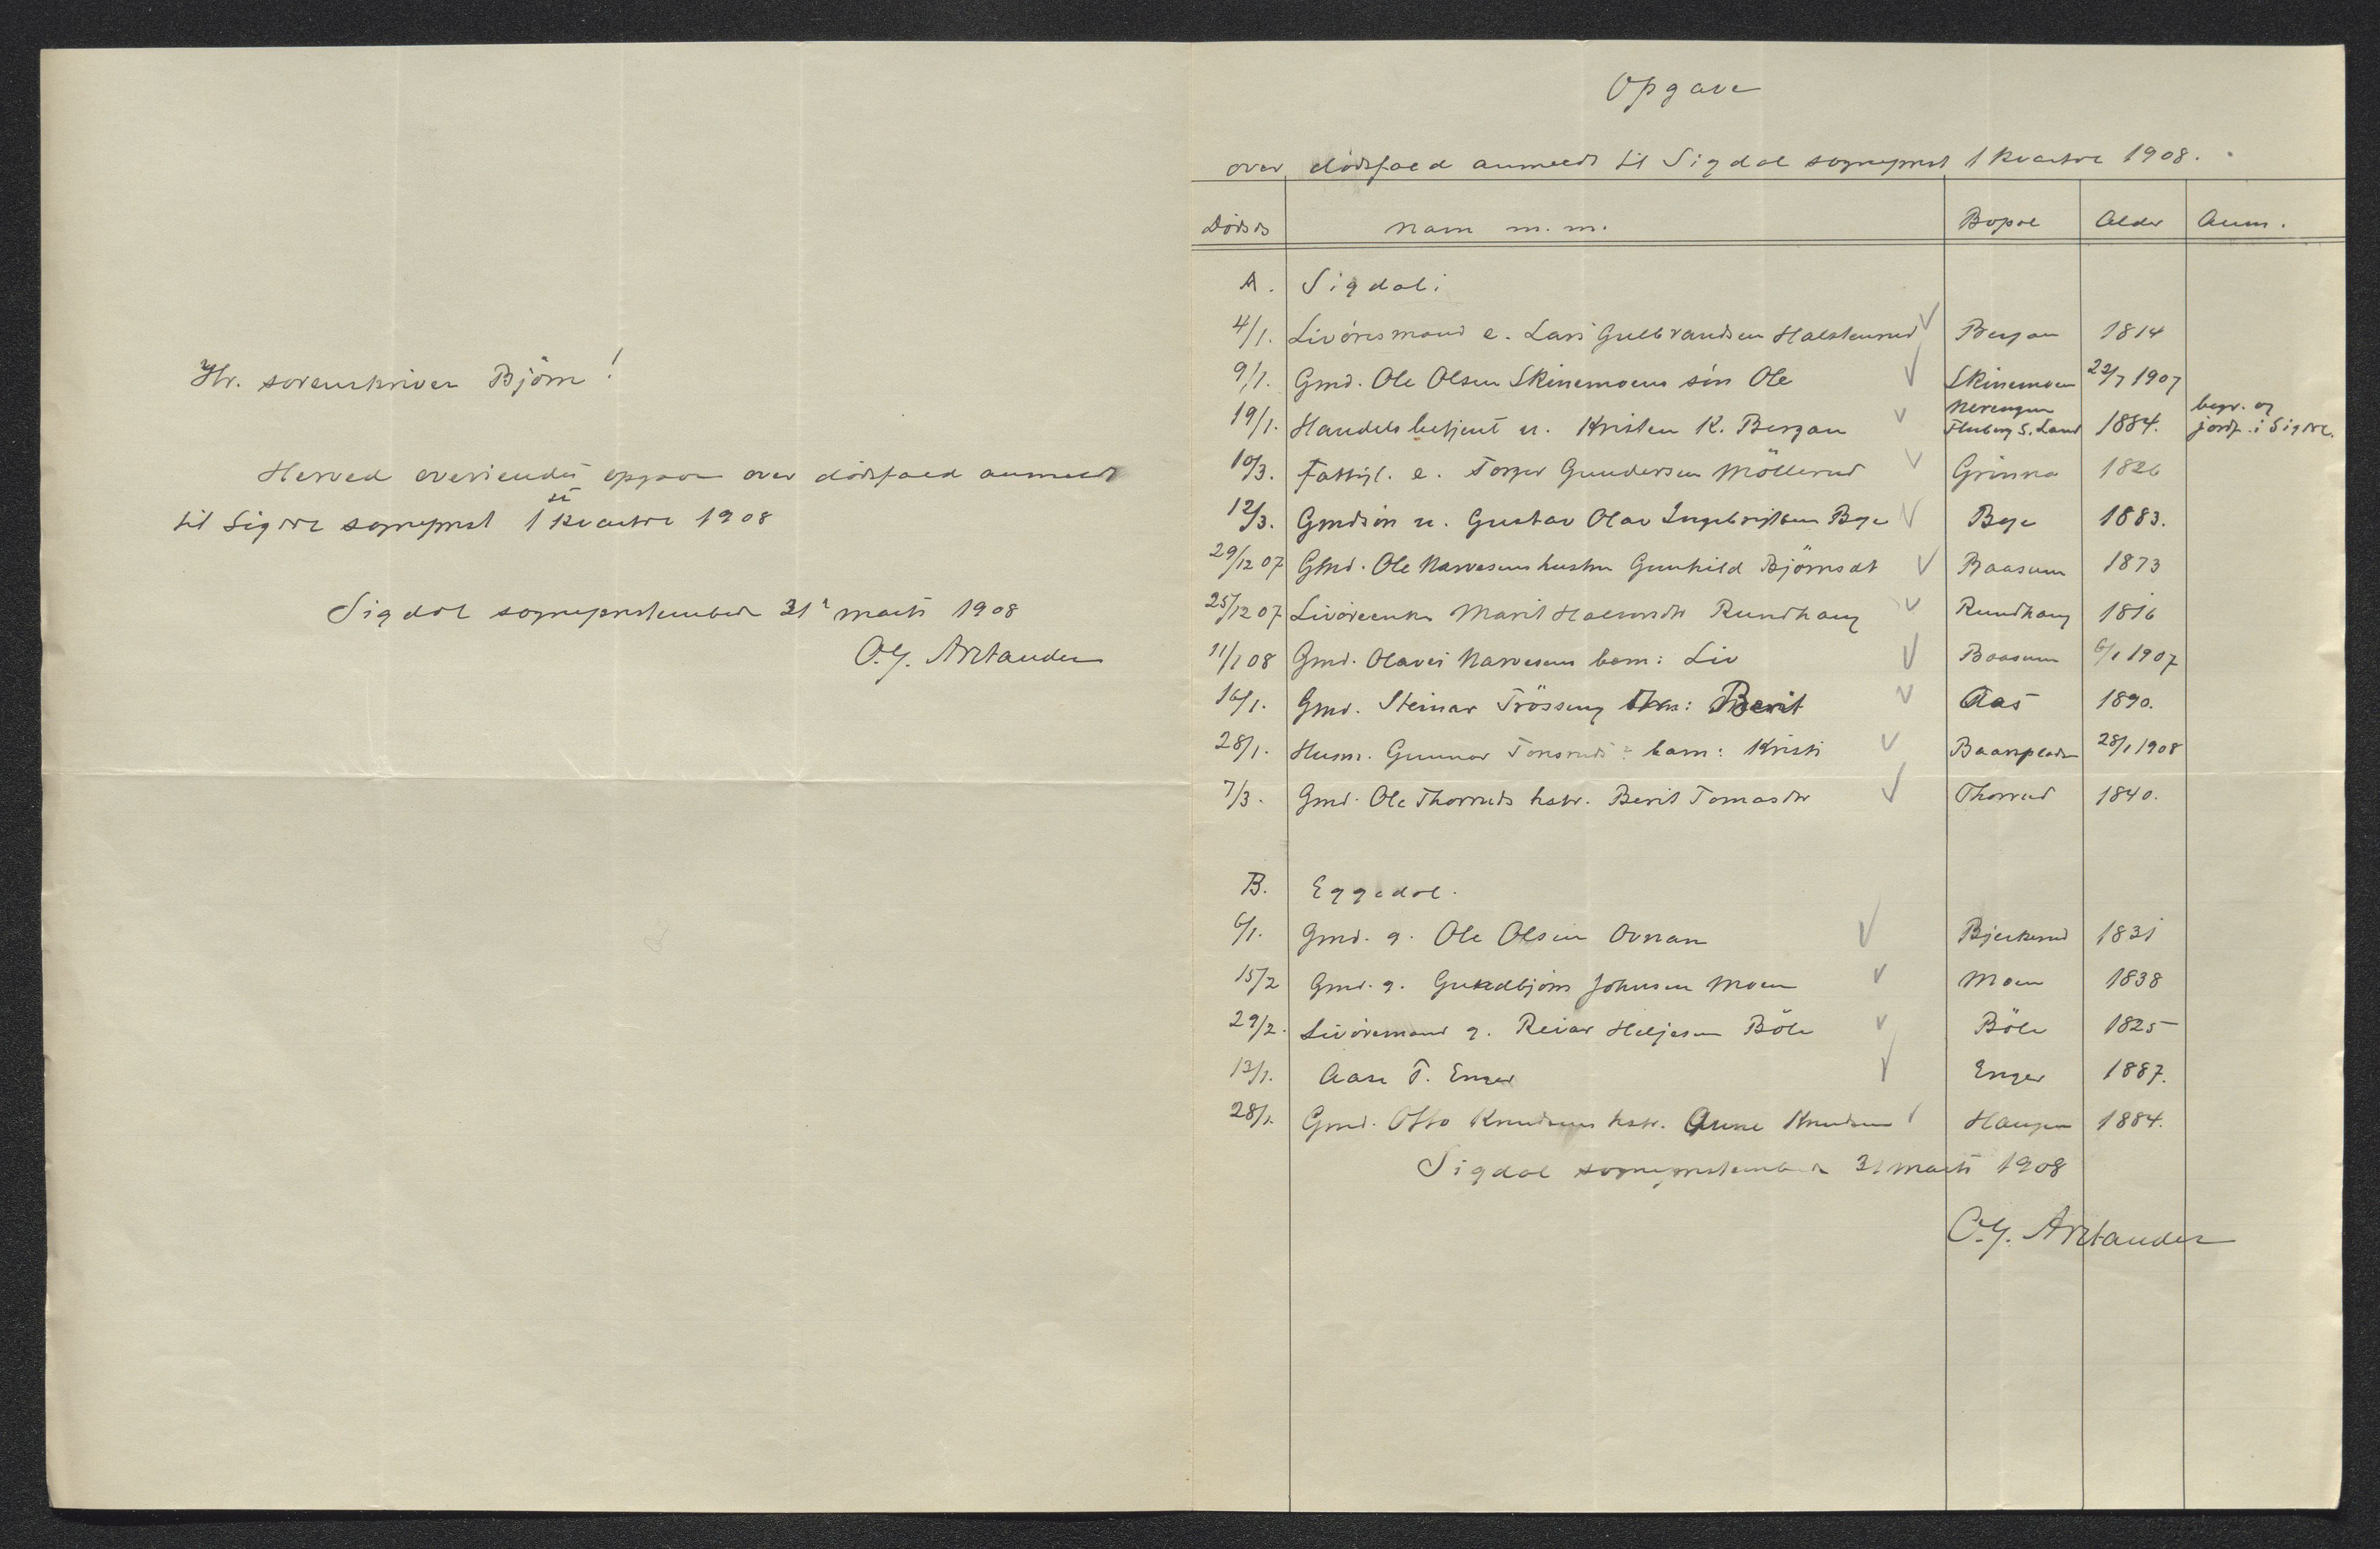 Hr. sorenskriver Björn!
Herved oversendes opgave over dödsfald anmeldt
til Sigdal sogneprest 1ste kvartal 1908
Sigdal sogneprestembede 31te marts 1908
O.G. Arstander
Opgave
over dödsfald anmeldt til Sigdal sogneprest 1 kvartal 1908.
Dödsd. Navn m. m. Bopæl Alder Anm.
A. Sigdal:
4/1. Livöresmand e. Lars Gulbrandsen Halstenrud Bergan 1814
9/1. Gmd. Ole Olsen Skinsmoens sön Ole Skinsmoen 22/7 1907
19/1. Handelsbetjent u. Kristen K. Bergan Fluberg S. Land 1884. begr. og jordf. i Sigdal.
10/3. Fattigl. e. Torger Gundersen Möllerud Grinna 1826
12/3. Gmdsön u. Gustav Olav Ingebrigtsen Bye Bye 1883.
29/12 07 Gmd. Ole Narvesens hustru Gunhild Björnsdt Baasum 1873
25/12 07 Livöreenke Marit Halvordtr Rundhaug Rundhaug 1816
11/1 08 Gmd. Olaves Narvesens barn: Liv Baasum 6/1 1907
16/1. Gmd. Steinar Trösseng Berit Aas 1890.
28/1. Husm. Gunnar Tonsruds barn: Kristi 28/1 1908
7/3. Gmd. Ole Thorruds hstr. Berit Tomasdtr Thorrud 1840.
B. Eggedal.
6/1. Gmd. g. Ole Olsen Ovnan Bjerkerud 1831
15/2 Gmd. g. Gundbjörn Johnsen Moen Moen 1838
29/2. Livöremand g. Reiar Heljesen Böle Böle 1825
13/1. Aase T. Enger Enger 1887.
28/1. Gmd. Otto Knudsens hstr. Anne Knudsen Haugen 1884.
Sigdal sogneprestembede 31 marts 1908
O.G. Arstander